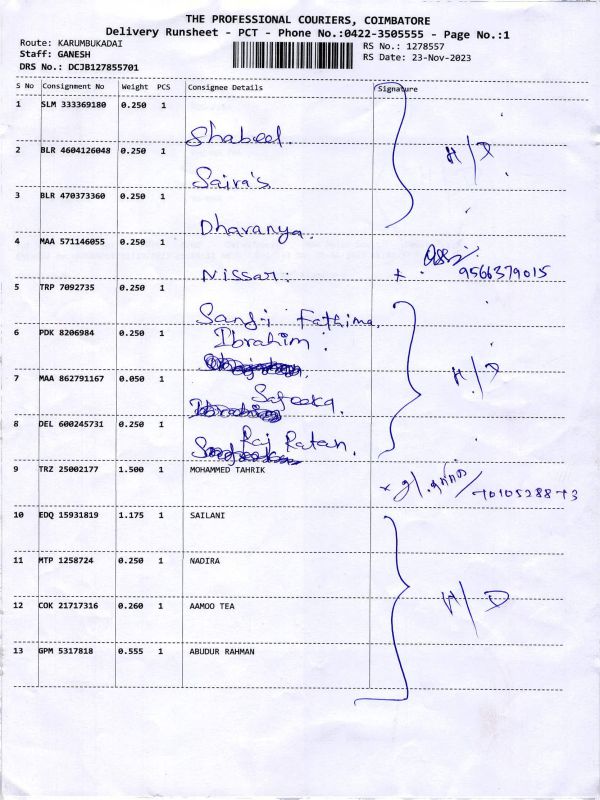 THE PROFESSIONAL COURIERS, COIMBATORE
Delivery Runsheet - PCT - Phone No.:0422-3505555 - Page No.:1
Route: KARUMBUKADAI RS No.: 1278557
Staff: GANESH RS Date: 23-Nov-2023
DRS No.: DCJB127855701
S No Consignment No Weight PCS Consignee Details Signature
1 SLM 333369180 0.250 1
Shabeel.
2 BLR 4604126048 0.250 1 H/D
Saira's
3 BLR 470373360 0.250 1
Dhavanya.
4 MAA 571146055 0.250 1
Nissar. x 9566379015
5 TRP 7092735 0.250 1
Fathima.
6 PDK 8206984 0.250 1 Ibrahim.
7 MAA 862791167 0.050 1 H/D
Safeeka.
8 DEL 600245731 0.250 1 Raj Ratan.
9 TRZ 25002177 1.500 1 MOHAMMED TAHRIK
x
10 EDQ 15931819 1.175 1 SAILANI
11 MTP 1258724 0.250 1 NADIRA
12 COK 21717316 0.260 1 AAMOO TEA H/D
13 GPM 5317818 0.555 1 ABUDUR RAHMAN